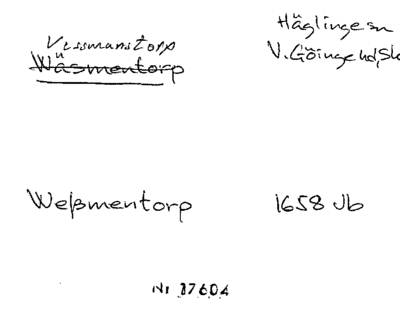 Vessmanstorp
Wäsmentorp
Häglinge sn
V. Göinge hd, Sk
Weßmentorp
1658 Jb
Nr 17604